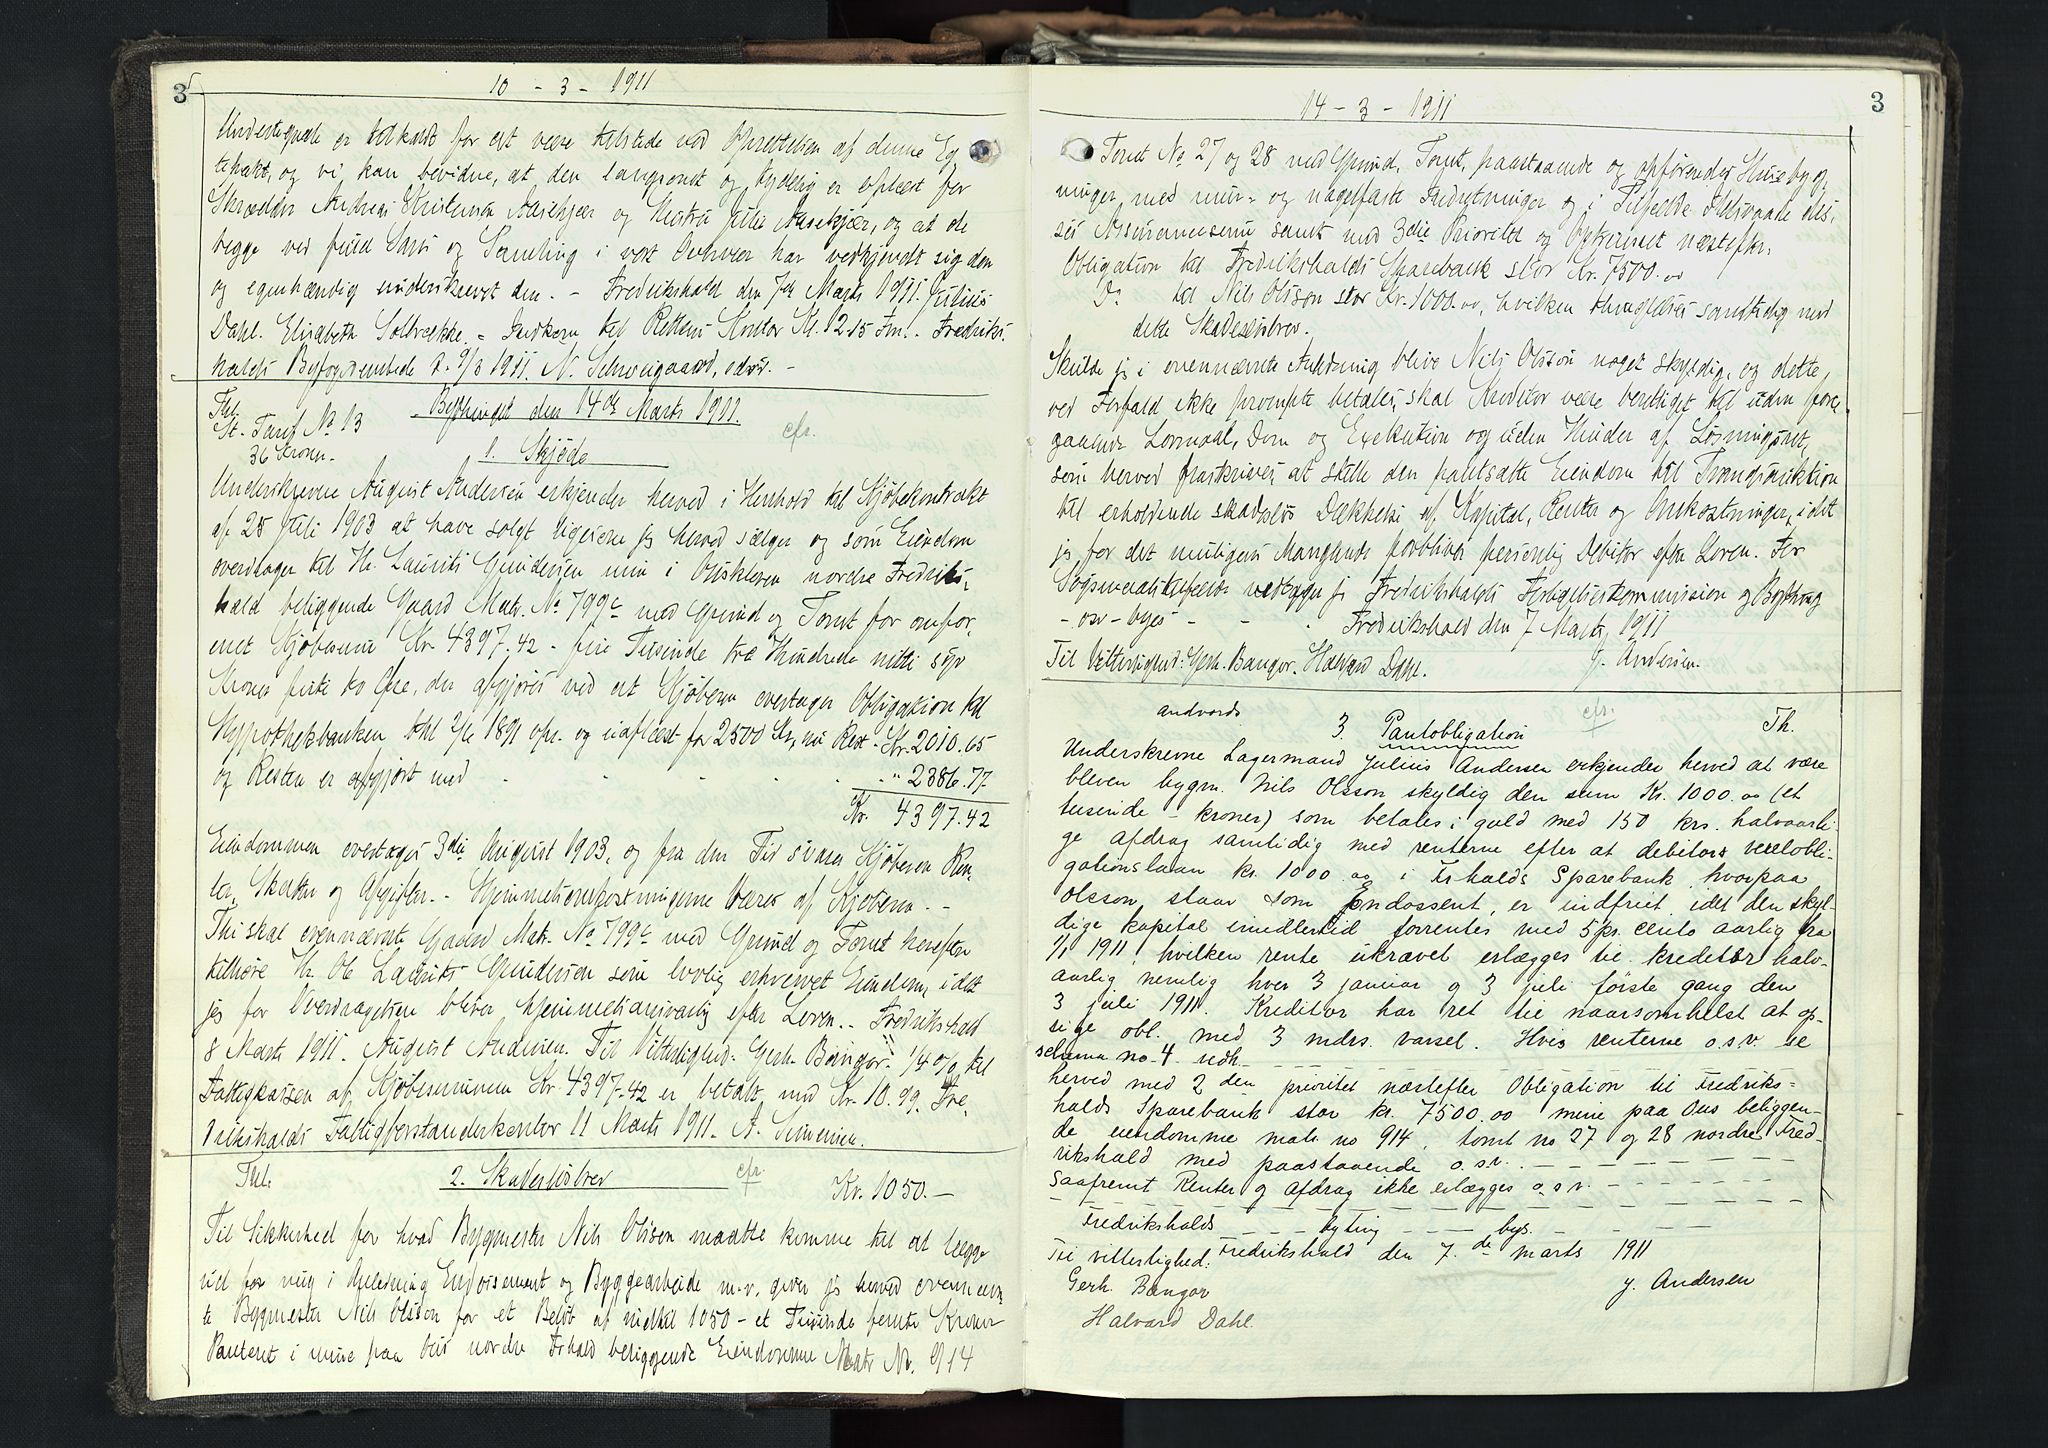 3
10 - 3 - 1911
Undertegnede er tilkaldt for at være tilstede ved Oprettelsen af denne Eg
tepakt, og vi kan bevidne, at den langsomt og tydelig er oplæst for
Skrædder Andreas Kristensen Aasekjær og Hustru Julie Aasekjær, og at de
begge ved fuld Sans og Samling i vort Overvær har vedkjendt sig den
og egenhændig underskrevet den. - Fredrikshald den 7de Marts 1911. Julius
Dahl. Elisabeth Solbrække. = Indkom til Rettens Kontor Kl. 12.15 Fm.. Fredriks-
halds Byfogedembede d. 9/3 1911. N. Schweigaard, edsv. -
Thl.
St. Tarif No 13
36 Kroner.
Bythinget den 14de Marts 1911.
cfr.
1. Skjøde
Underskrevne August Andersen erkjender herved i Henhold til Kjøbekontrakt
af 25 Juli 1903 at have solgt ligesom jeg herved sælger og som Eiendom
overdrager til Hr. Laurits Gundersen min i Ouskleven nordre Fredriks-
hald beliggende Gaard Matr. No 799c med Grund og Tomt for omfor-
enet Kjøbesum Kr. 4397.42 - fire Tusinde tre Hundrede nitti syv
Kroner firti to Øre, der afgjøres ved at Kjøberen overtager Obligation til
Hypothekbanken thl 2/6 1891 opr. og uaflæst for 2500 Kr, nu Rest - Kr. 2010.65
og Resten er afgjort med - - - - - " 2386.77
Kr. 4397.42
Eiendommen overtages 3die August 1903, og fra den Tid svarer Kjøberen Ren-
ter, Skatter og Afgifter. - Hjemmelsomkostningerne bæres af Kjøberen. -
Thi skal ovennævnte Gaard Matr. No 799c med Grund og Tomt herefter
tilhøre Hr. Laurits Gundersen som lovlig erhvervet Eiendom, idet
jeg for Overdragelsen bliver hjemmelsansvarlig efter Loven.. Fredrikshald
8 Marts 1911. August Andersen. Til Vitterlighed: Gerh. Bangor. 1/4 o/o til
Fattigkassen af Kjøbesummen Kr. 4397.42 er betalt med Kr. 10.99. Fre-
drikshalds Fattigforstanderkontor 11 Marts 1911. A. Simensen.
Thl. 2. Skadesløsbrev cfr. Kr. 1050.-
Til Sikkerhed for hvad Bygmester Nils Olsson maatte komme til at lægge
ud for mig i Anledning Endossement og Byggearbeide m.v. giver jeg herved ovennævn-
te Bygmester Nils Olsson for et Beløb af indtil 1050 - et Tusinde femti Kroner
Panteret i mine paa Øus nordre Frhald beliggende Eiendomme Matr Nr. 914
3
14 - 3 - 1911
Tomt No 27 og 28 med Grund, Tomt, paastaaende og opførendes Husebyg-
ninger med mur- og nagelfaste Indretninger og i Tilfælde Ildsvaade dis-
ses Assurancesum samt med 3die Prioritet og Opkrinset næstefter:
Obligation til Fredrikshalds Sparebank stor Kr. 7500.00
Do til Nils Olsson stor Kr. 1000.00, hvilken thinglæses samtidig med
dette Skadesløsbrev.
Skulde jeg i ovennævnte Anledning blive Nils Olsson noget skyldig, og dette
ved Forfald ikke prompte betales, skal Kreditor være berettiget til uden fore-
gaaende Lovmaal, Dom og Exekution og uden Hinder af Løsningsret,
som herved fraskrives, at stille den pantsatte Eiendom til Tvangsauktion
til erholdende skadesløs Dækkelse af Kapital, Renter og Omkostninger, idet
jeg for det muligens Manglende forbliver personlig Debitor efter Loven. For
Søgsmaalstilfælde vedtager jeg Fredrikshalds Forligelseskommission og Bything
- osv - byes - - - Fredrikshald den 7 Marts 1911
Til Vitterlighed: Gerh. Bangor. Halvard Dahl. J. Andersen.
andvords 3. Pantobligation cfr. Th.
Underskrevne Lagermand Julius Andersen erkjender herved at være
bleven bygm. Nils Olsson skyldig den sum Kr. 1000.00 (et
tusende - kroner) som betales i guld med 150 krs. halvaarli-
ge afdrag samtidig med renterne efter at debitors vexelobli-
gationslaan kr. 1000 00 i Frhalds Sparebank hvorpaa
Olsson staar som Endossent, er indfriet, idet den skyl-
dige kapital imidlertid forrentes med 5 pr. cento aarlig fra
1/1 1911, hvilken rente ukrævet erlægges til kreditor halv-
aarlig nemlig hver 3 januar og 3 juli første gang den
3 juli 1911. Kreditor har ret til naarsomhelst at op-
sige obl. med 3 mdrs. varsel. Hvis renterne o.s.v se
schema no 4 udh. - - -
herved med 2den prioritet næstefter Obligation til Fredriks-
halds Sparebank stor kr. 7500.00 mine paa Øus beliggen-
de eiendomme matr. no 914, tomt no 27 og 28 nordre Fred-
rikshald med paastaaende o.s.v. - - -
Saafremt Renter og afdrag ikke erlægges o.s.v. - - -
Fredrikshalds - - - byting - - - bys. - - -
Fredrikshald den 7.de marts 1911
Til vitterlighed:
Gerh. Bangor J. Andersen
Halvard Dahl.